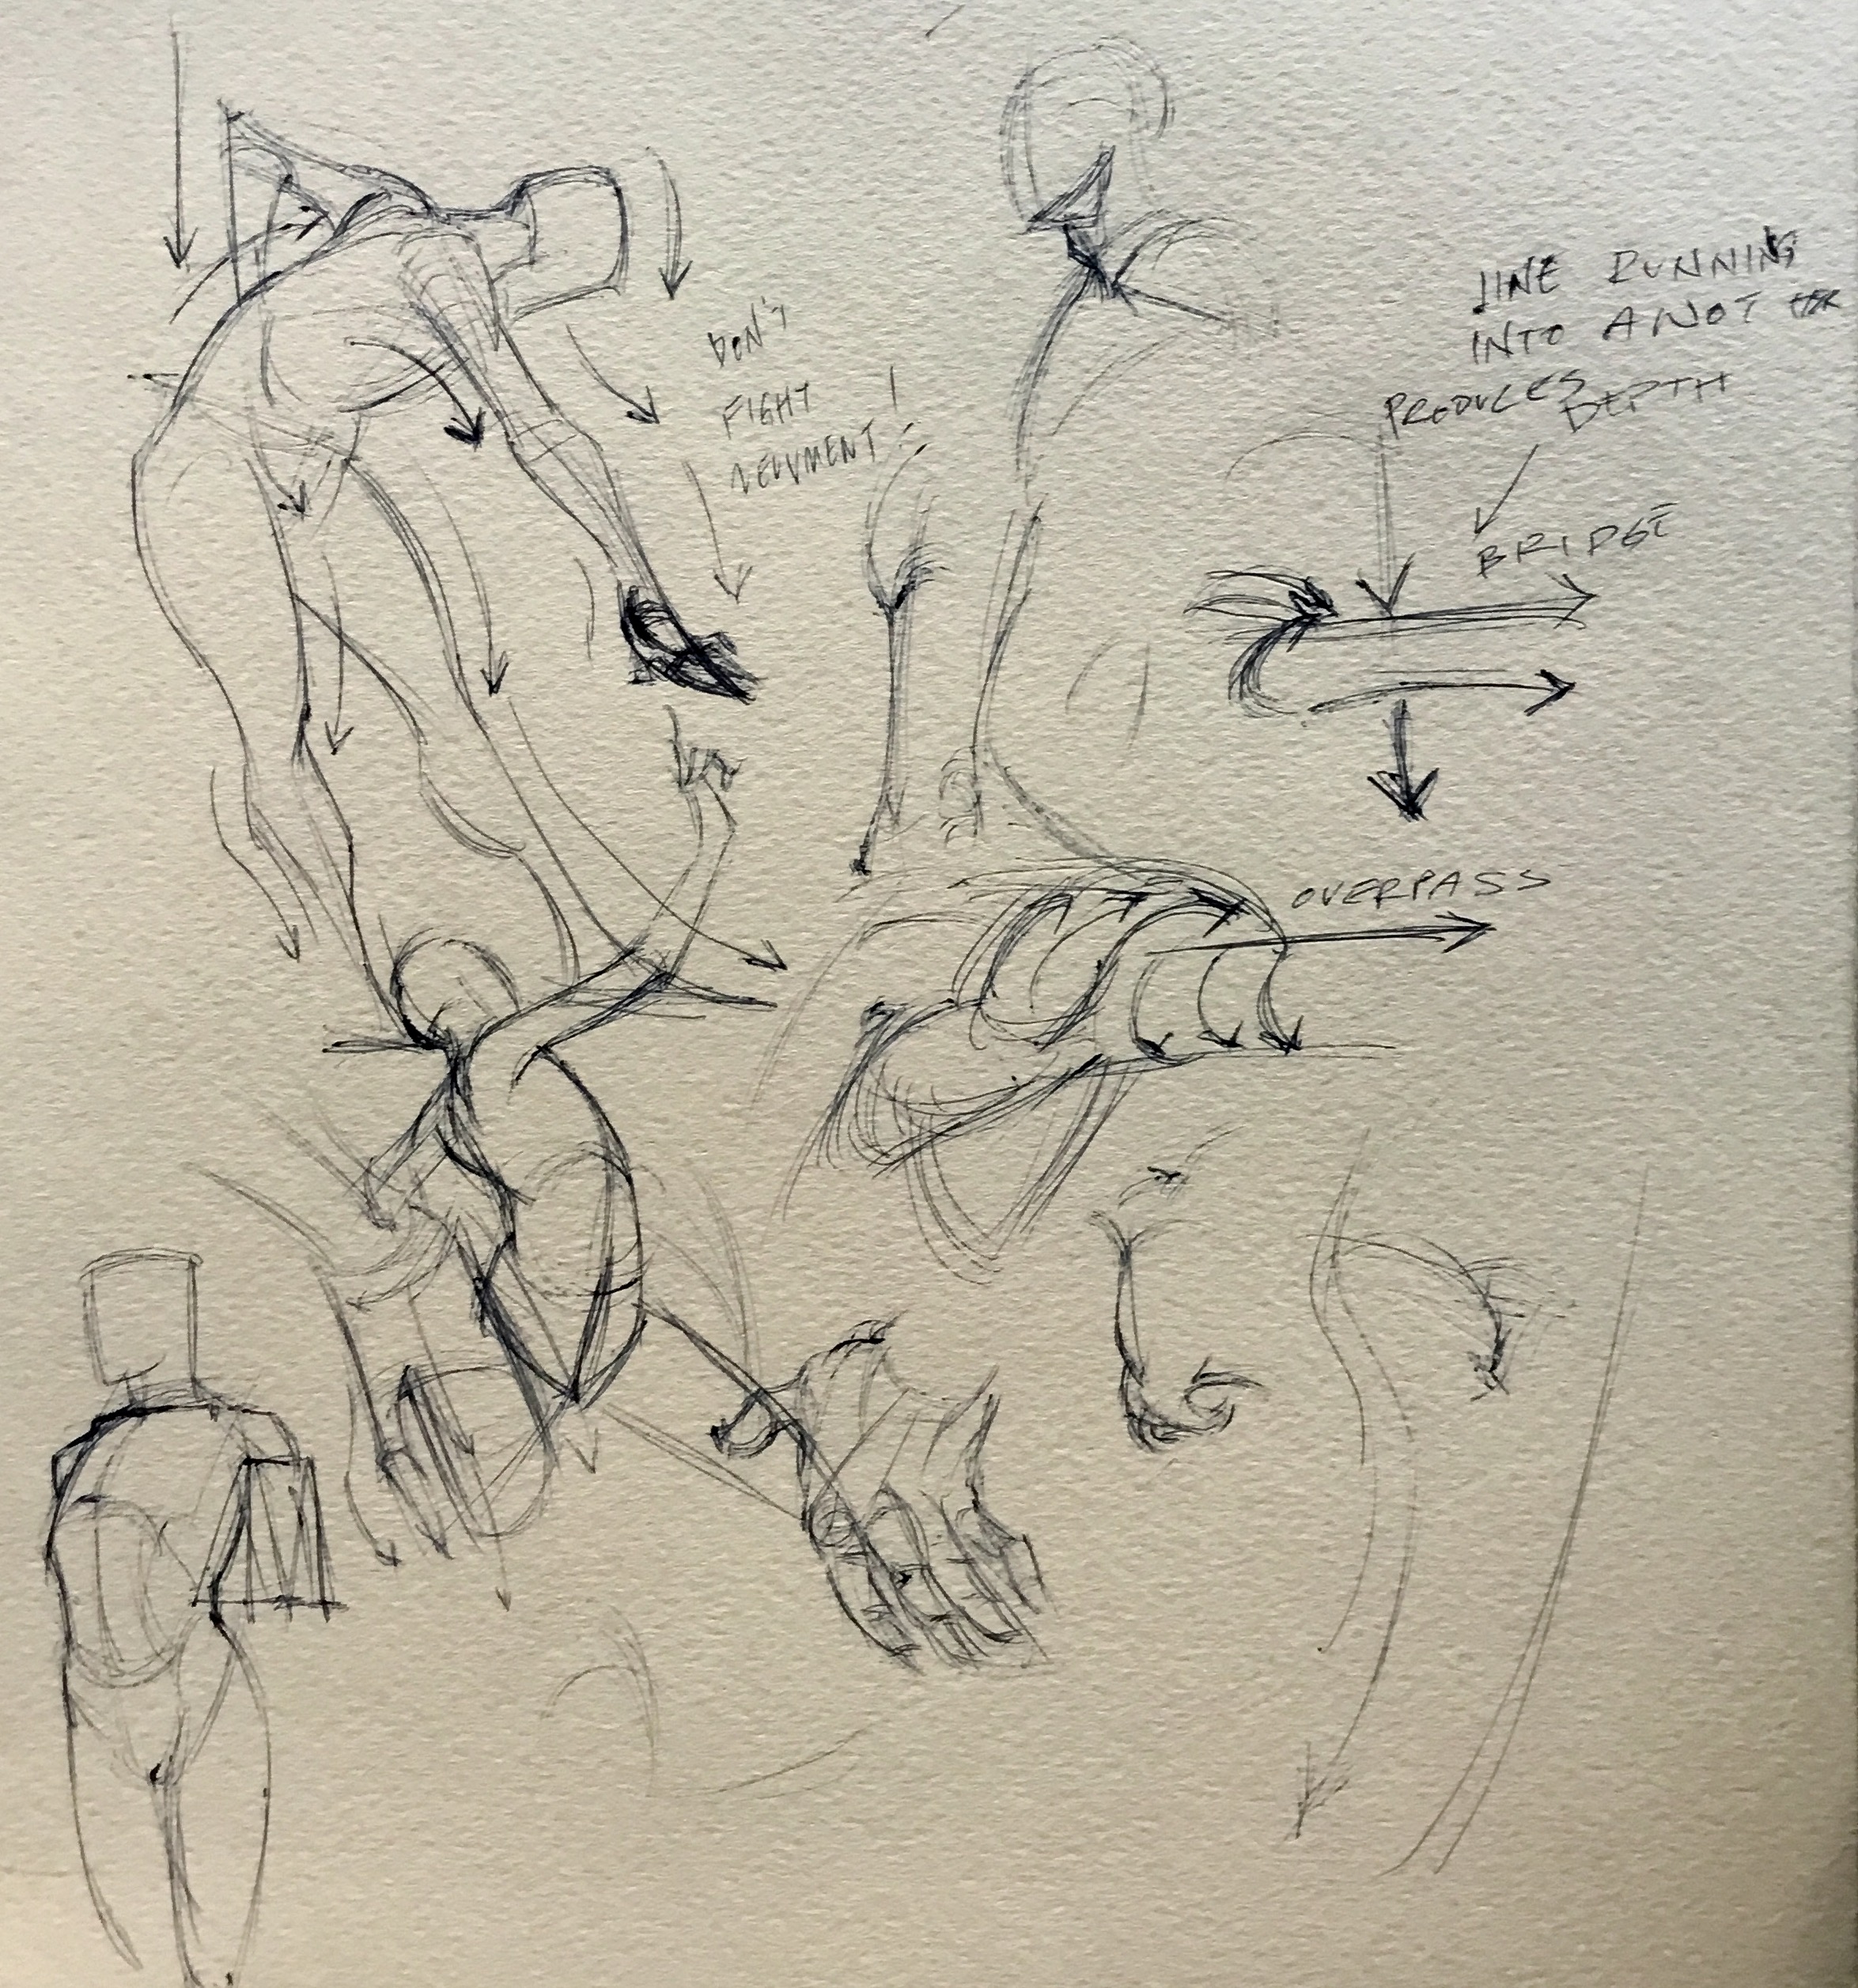 DON'T
FIGHT
MOVMENT!
LINE RUNNING
INTO ANOTHER
PRODUCES
DEPTH
BRIDGE
OVERPASS